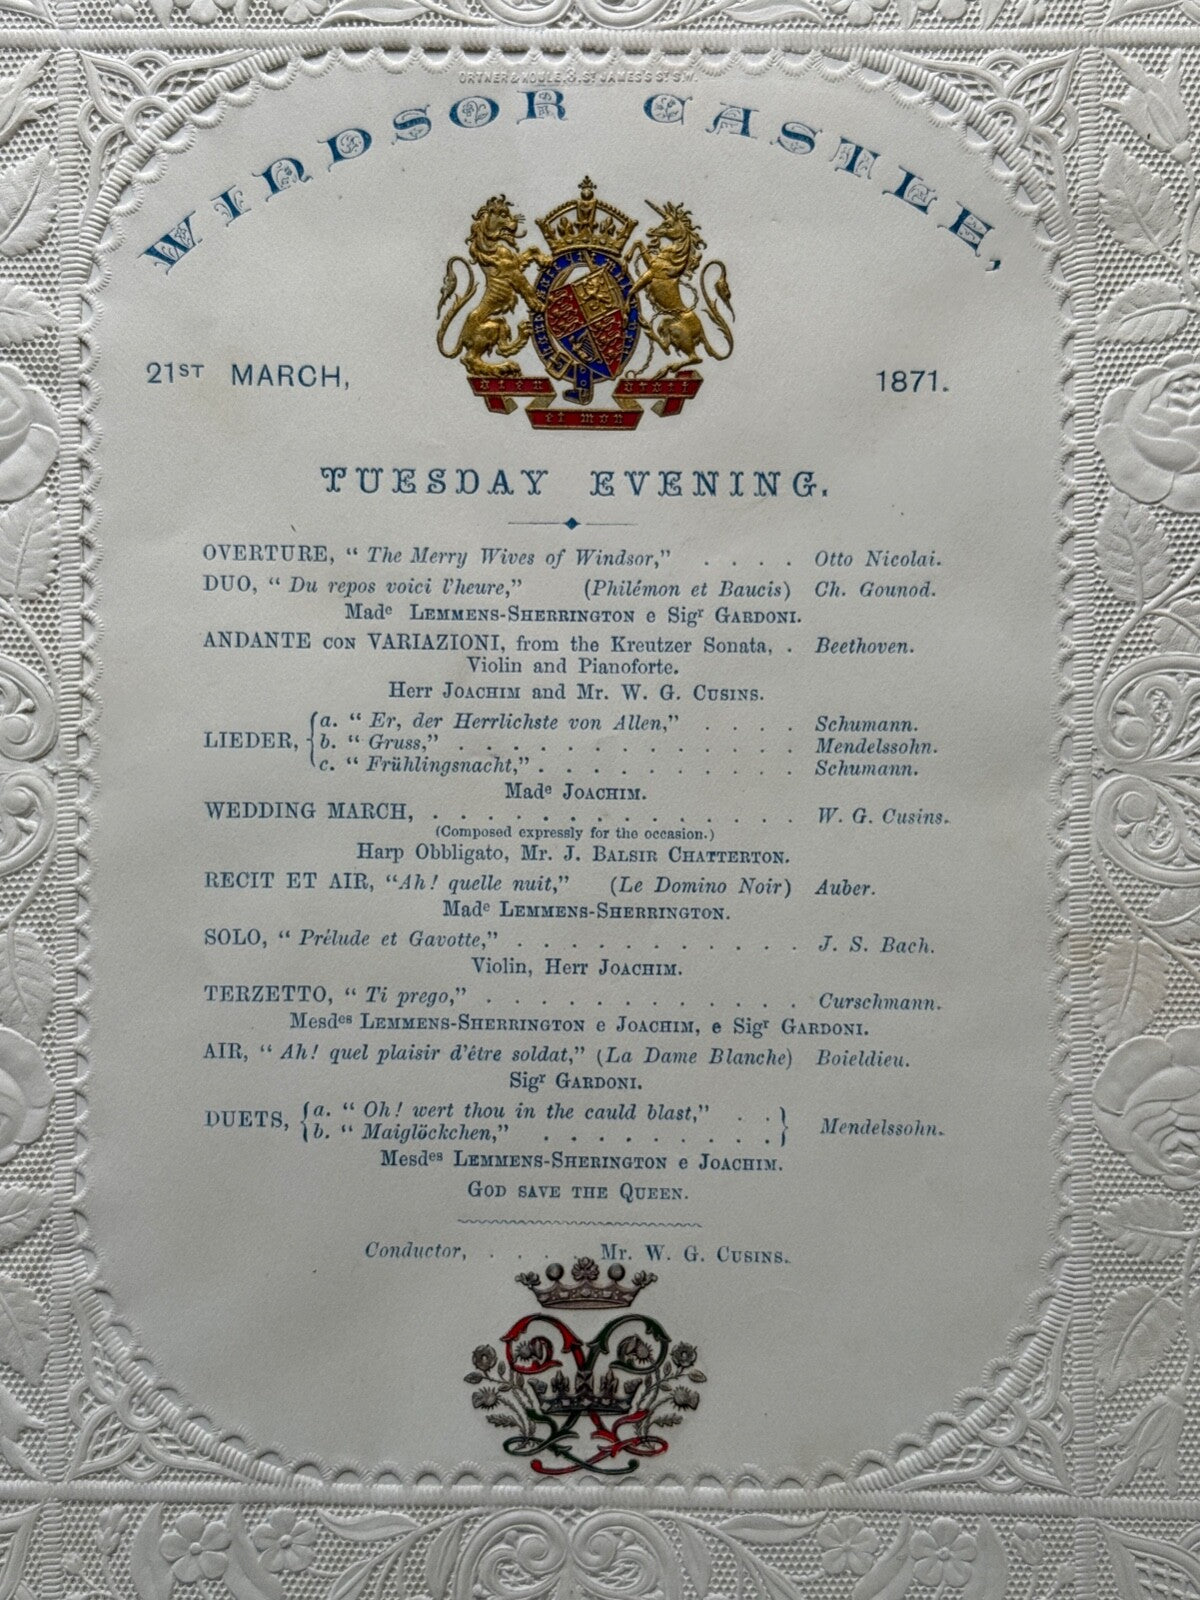 ORTNER & HOULE, 3, ST JAMES'S ST S.W.
WINDSOR CASTLE,
21ST MARCH, 1871.
DIEU ET MON DROIT
TUESDAY EVENING.
OVERTURE, “ The Merry Wives of Windsor,” . . . . Otto Nicolai.
DUO, “ Du repos voici l'heure,” (Philémon et Baucis) Ch. Gounod.
Made LEMMENS-SHERRINGTON e Sigr GARDONI.
ANDANTE CON VARIAZIONI, from the Kreutzer Sonata, . Beethoven.
Violin and Pianoforte.
Herr JOACHIM and Mr. W. G. CUSINS.
LIEDER, { a. “ Er, der Herrlichste von Allen,” . . . . Schumann.
b. “ Gruss,” . . . . . . . . . . . . Mendelssohn.
c. “ Frühlingsnacht,” . . . . . . . . . . Schumann.
Made JOACHIM.
WEDDING MARCH, . . . . . . . . . . . . . W. G. Cusins.
(Composed expressly for the occasion.)
Harp Obbligato, Mr. J. BALSIR CHATTERTON.
RECIT ET AIR, “Ah! quelle nuit,” (Le Domino Noir) Auber.
Made LEMMENS-SHERRINGTON.
SOLO, “ Prélude et Gavotte,” . . . . . . . . . . . J. S. Bach.
Violin, Herr JOACHIM.
TERZETTO, “ Ti prego,” . . . . . . . . . . . . Curschmann.
Mesdes LEMMENS-SHERRINGTON e JOACHIM, e Sigr GARDONI.
AIR, “ Ah! quel plaisir d'être soldat,” (La Dame Blanche) Boieldieu.
Sigr GARDONI.
DUETS, { a. “ Oh! wert thou in the cauld blast,” . . }
b. “ Maiglöckchen,” . . . . . . . . . Mendelssohn.
Mesdes LEMMENS-SHERINGTON e JOACHIM.
GOD SAVE THE QUEEN.
Conductor, . . . . Mr. W. G. CUSINS.